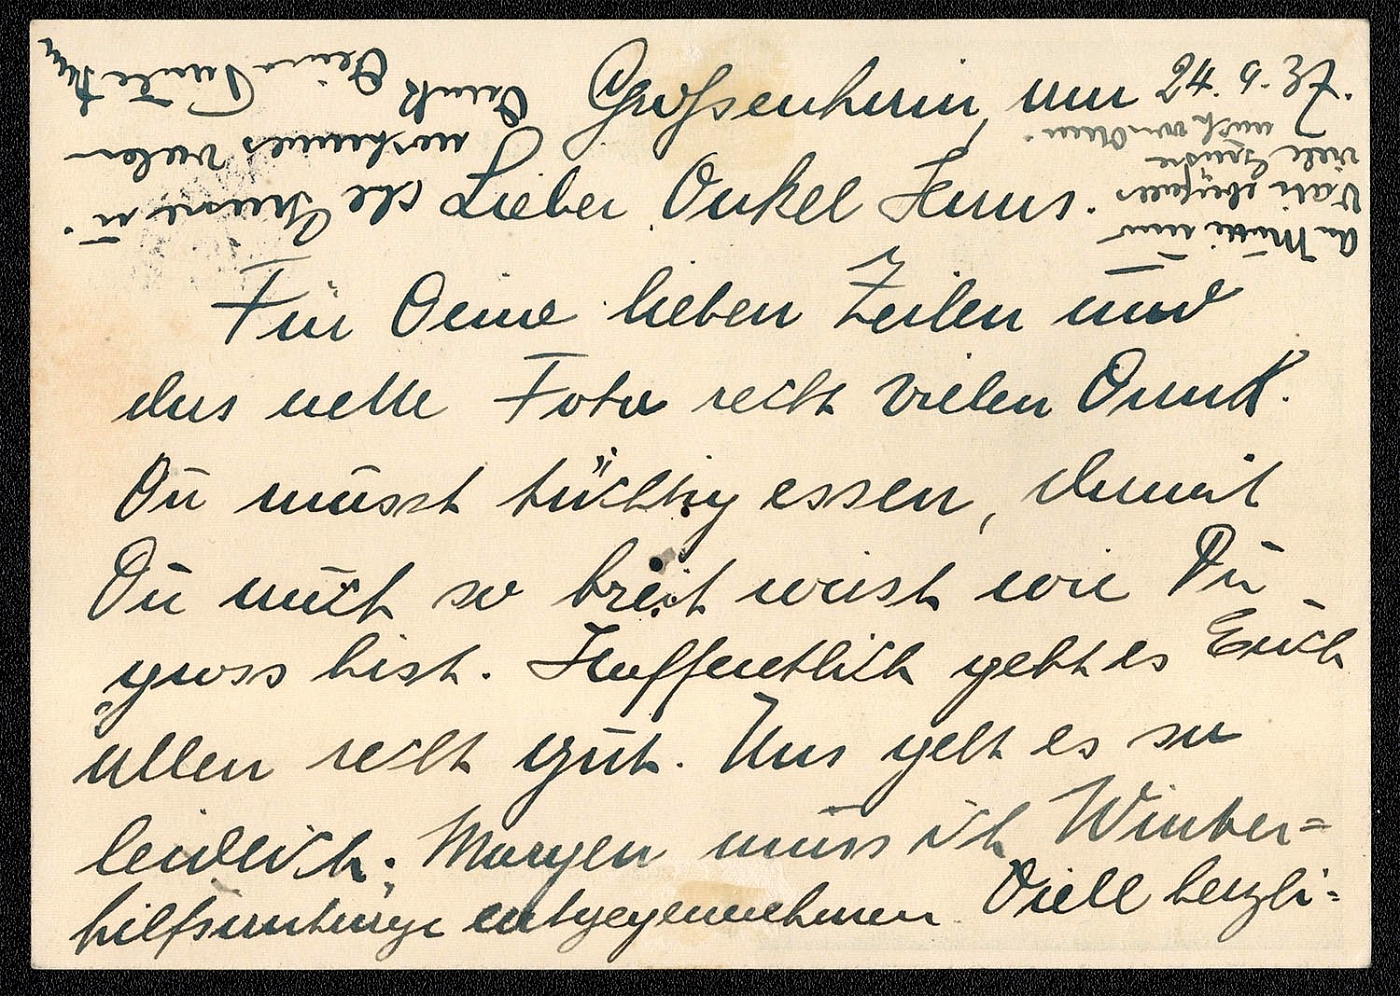 Großenhain, am 24.9.37.
Lieber Onkel Hans.
Für Deine lieben Zeilen und
das nette Foto recht vielen Dank.
Du musst tüchtig essen, damit
Du auch so breit wirst wie Du
gross bist. Hoffentlich geht es Euch
allen recht gut. Uns geht es so
leidlich. Morgen muss ich Winter=
hilfsanträge entgegennehmen. Viele herzli=
che Grüsse u.
nochmals vielen
Dank Deine Tante
An Mutti und
Vati ebenfalls
viele Grüsse
auch von